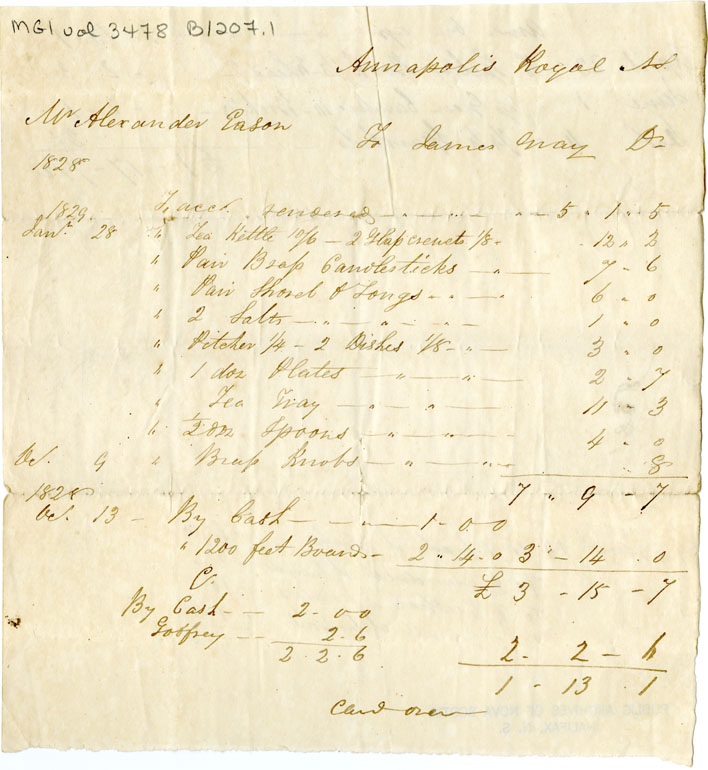 MG1 vol 3478 B1207.1
Annapolis Royal NS
Mr Alexander Eason To James Gray Dr
1828 To acct. rendered 5 " 1 " 5
1829.
Jany. 28 " Tea Kettle 10/6 - 2 Glass 1/8 - 12 " 2
" Pair Brass Candlesticks - 7 - 6
" Pair Shovel & Tongs - 6 " 0
" 2 Salts - 1 " 0
" Pitcher 1/4 - 2 Dishes 1/8 - 3 " 0
" 1 doz Plates - 2 - 7
" Tea Tray - 11 - 3
" 1/2 doz Spoons - 4 - 0
Oct. 9 " Brass Knobs - 8
7 " 9 - 7
1828
Oct. 13 - By Cash - 1 - 0 - 0
" 1200 feet Boards - 2 " 14 - 0 3 " - 14 . 0
£ 3 - 15 - 7
Cr.
By Cash - 2 - 0 0
Godfrey - 2 - 6
2 . 2 . 6 2 - 2 - 6
1 - 13 . 1
Card over
PUBLIC ARCHIVES OF NOVA SCOTIA
HALIFAX, N. S.